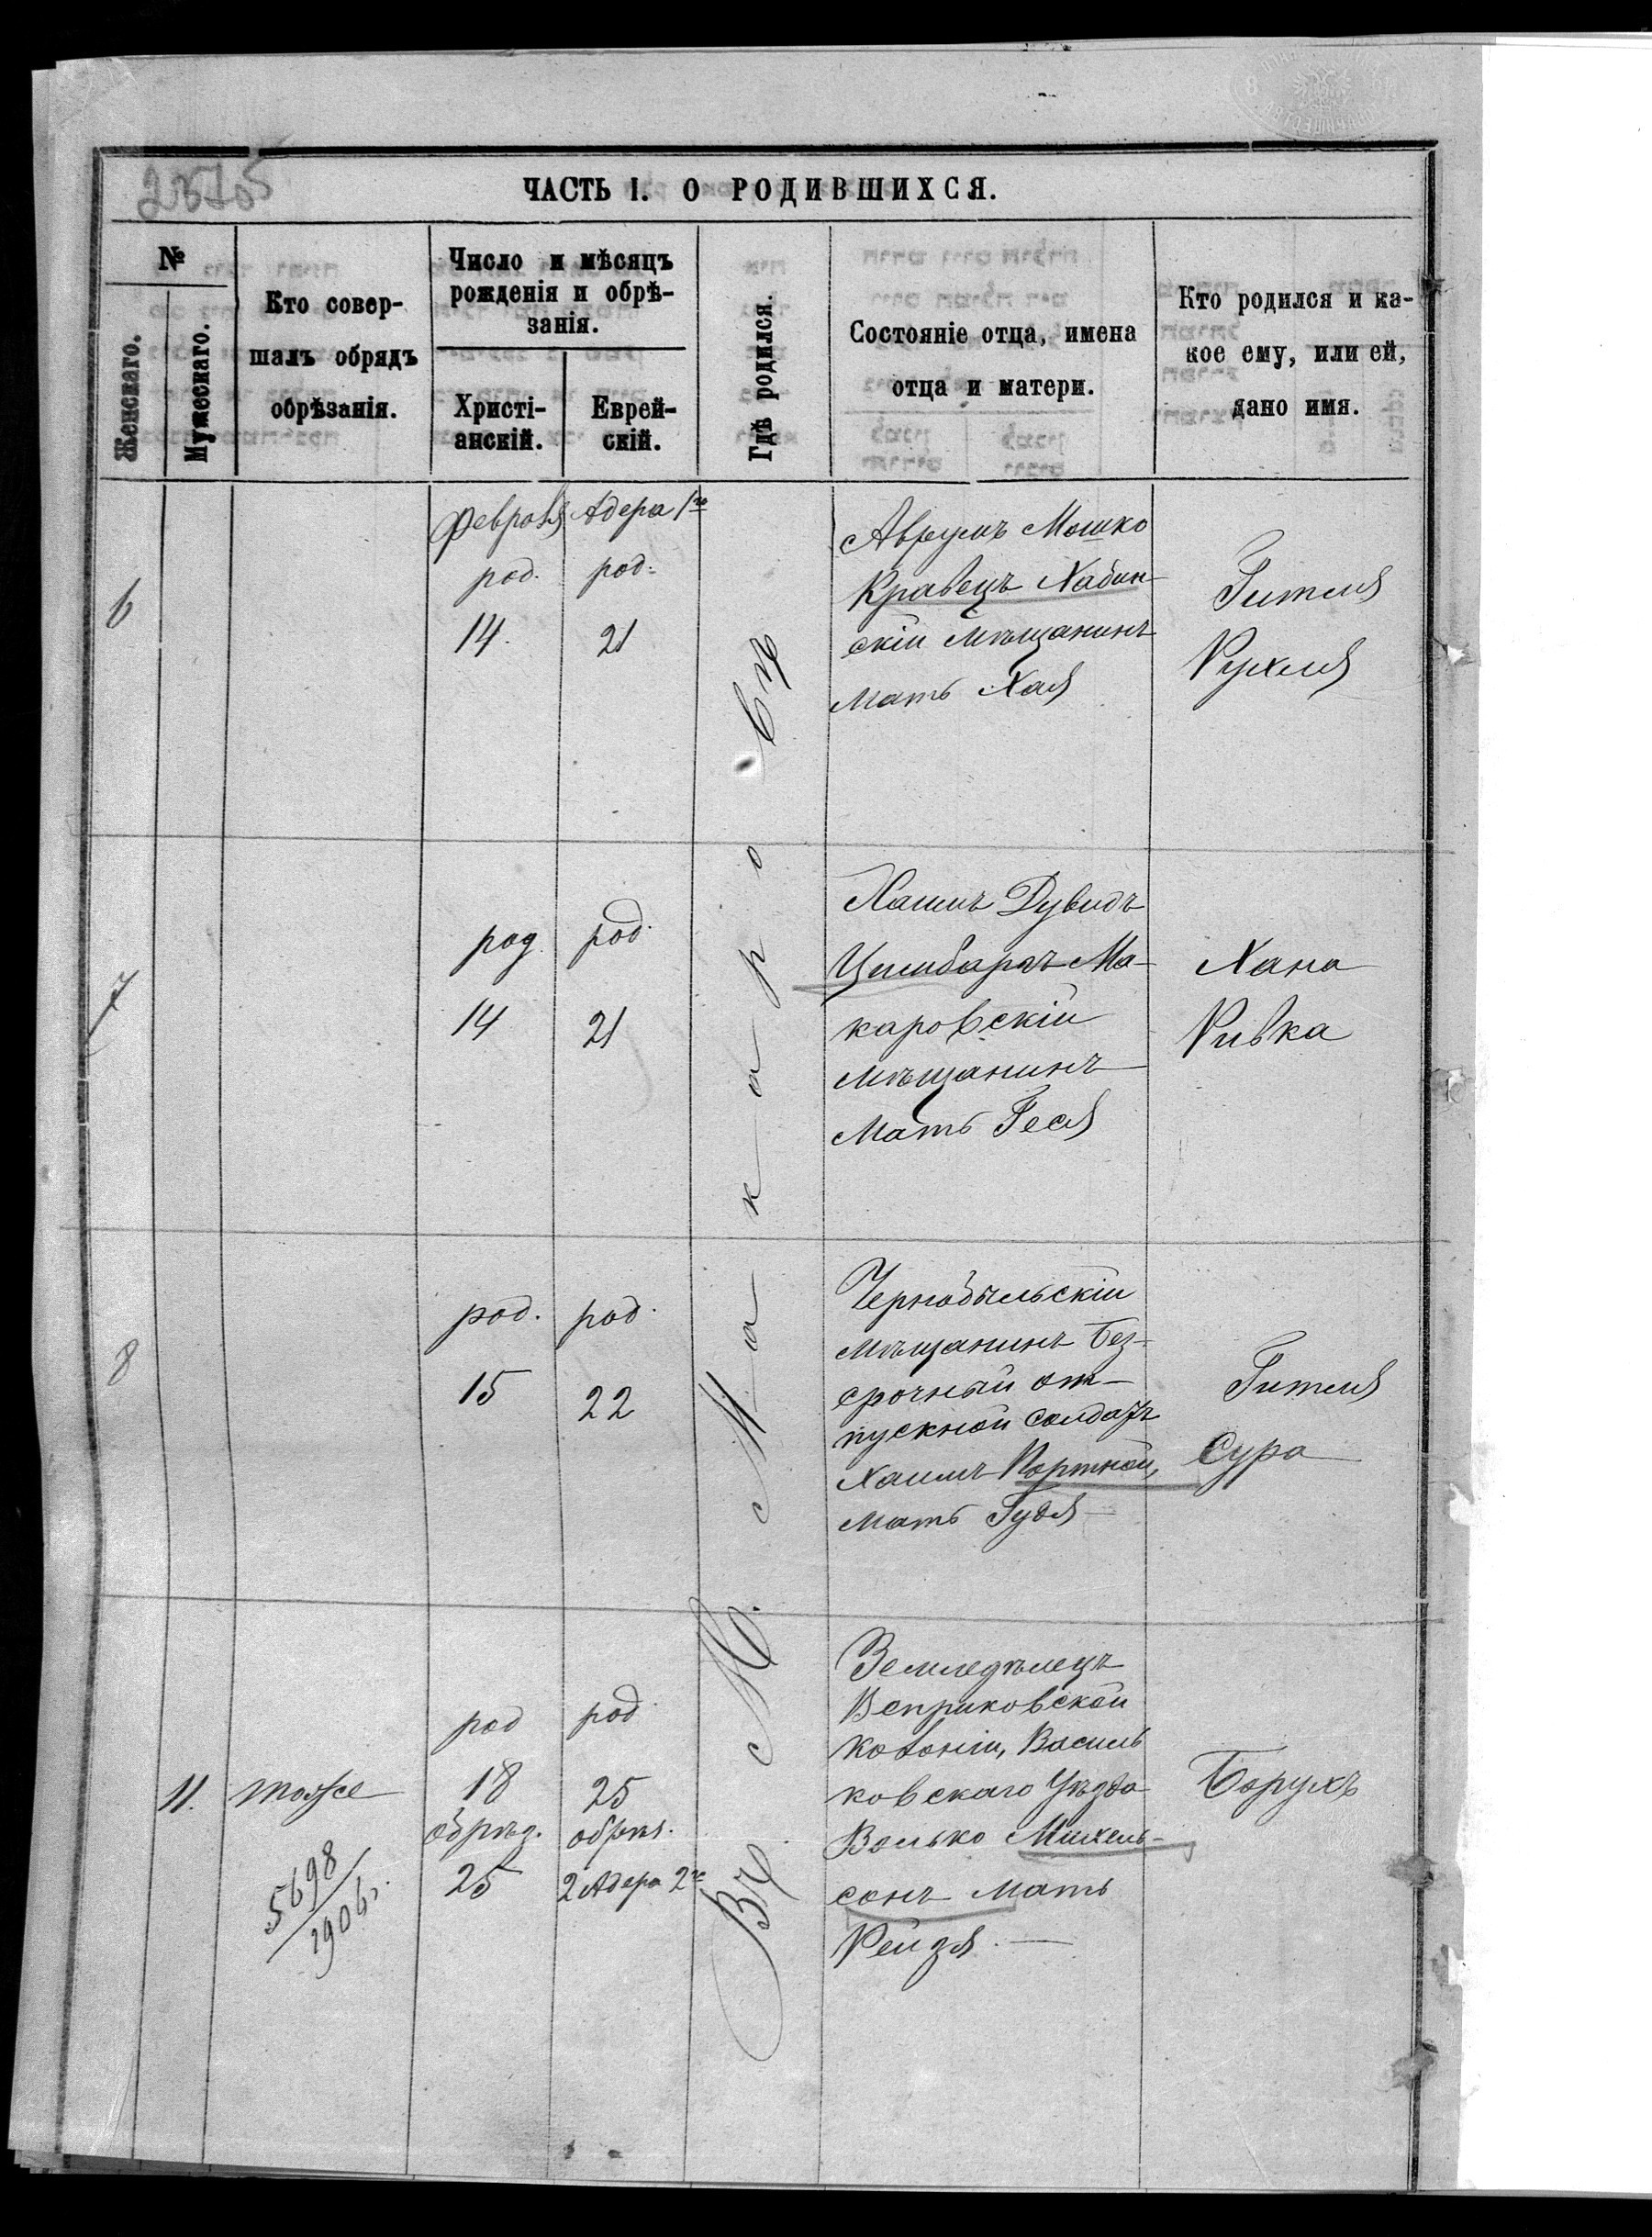 23705
ЧАСТЬ I. О РОДИВШИХСЯ.
№
Женскаго.
Мужескаго.
Кто совер-
шалъ обрядъ
обрѣзанія.
Число и мѣсяцъ
рожденія и обрѣ-
занія.
Христі-
анскій.
Еврей-
скій.
Гдѣ родился.
Состояніе отца, имена
отца и матери.
Кто родился и ка-
кое ему, или ей,
дано имя.
Въ М. Макаровѣ
6
Февраля
род.
14.
Адера 1го
род.
21
Аврумъ Мошко
Кравецъ Хабин-
скій мѣщанинъ
мать Хая
Гитля
Рухля
7
род
14
род.
21
Хаимъ Дувидъ
Цимбаръ Ма-
каровскій
мѣщанинъ
Мать Геся
Хана
Ривка
8
род.
15
род.
22
Чернобыльскій
мѣщанинъ без-
срочный от-
пускной солдатъ
Хаимъ Портной,
мать Гудя
Гитля
Сура
11.
Мойсе
5698
1906г.
род
18
обрѣз.
25
род.
25
обрѣз.
2 Адера 2го
Земледѣлецъ
Веприковской
колоніи, Василь
ковскаго Уѣзда
Волько Михель-
сонъ Мать
Рейзя.
Борухъ